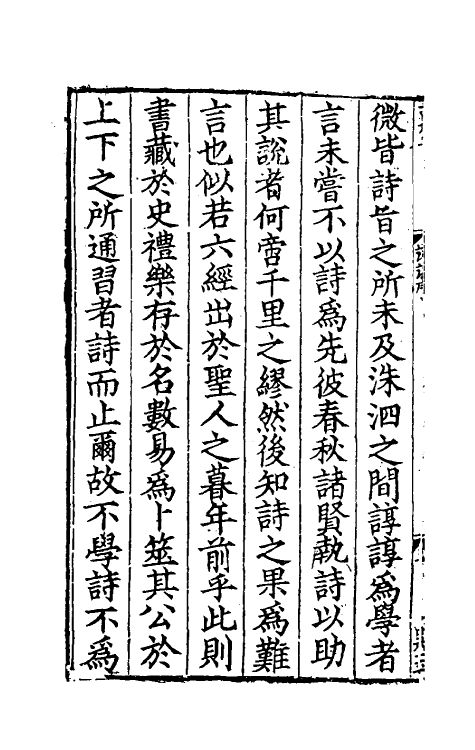 微皆詩旨之所未及洙泗之間諄諄爲學者
言未嘗不以詩爲先彼春秋諸賢執詩以助
其說者何啻千里之繆然後知詩之果爲難
言也似若六經出於聖人之暮年前乎此則
書藏於史禮樂存於名數易爲卜筮其公於
上下之所通習者詩而止爾故不學詩不爲